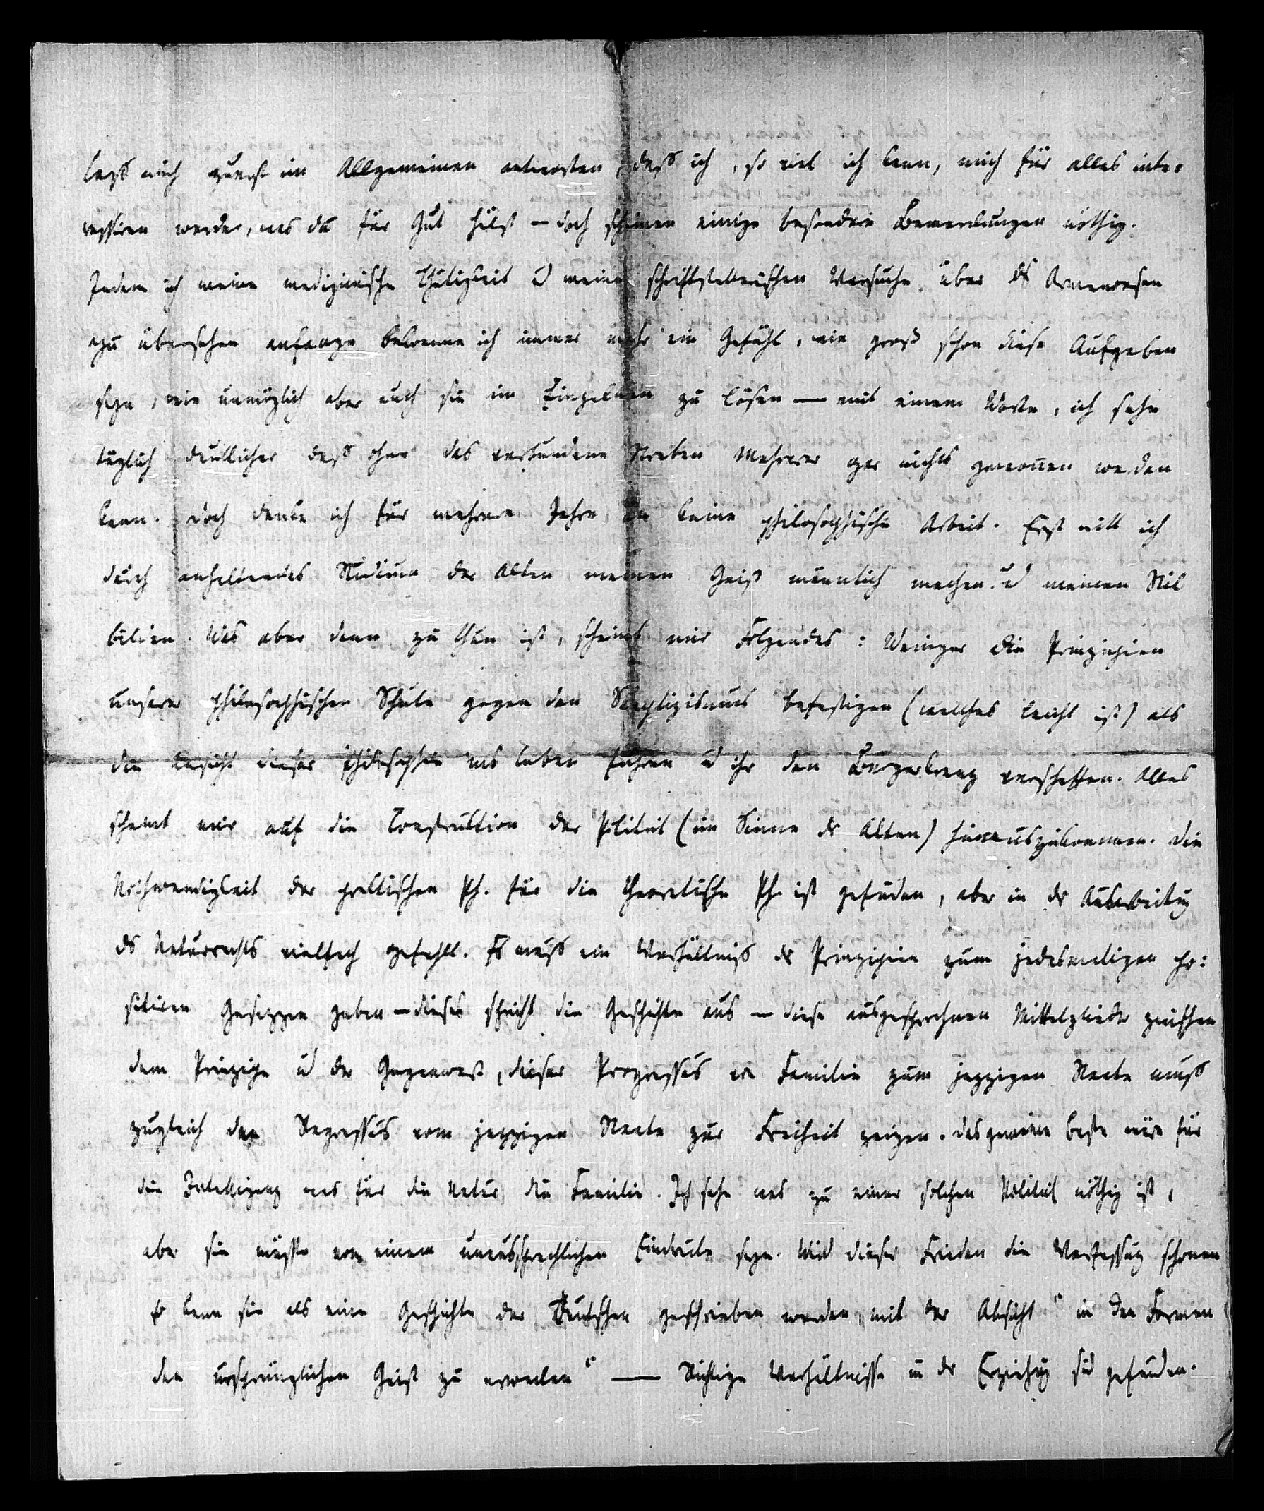 Lass mich zuerst im Allgemeinen antworten, daß ich, so viel ich kann, mich für alles inte-
ressiren werde, was du für Gut hälst – doch scheinen einige besondere Bemerkungen nöthig.
Indem ich meine medizinische Thätigkeit u meine schriftstellerischen Versuche über ds Armenwesen
zu übersehen anfange bekomme ich immer mehr ein Gefühl, wie groß schon diese Aufgaben
seyn, wie unmöglich aber auch sie im Einzelnen zu lösen — mit einem Worte, ich sehe
täglich deutlicher daß ohne das verbundene Streben Mehrerer gar nichts gewonnen werden
kann. Doch denke ich für mehrere Jahre an keine philosophische Arbeit. Erst will ich
durch anhaltendes Studium der Alten meinen Geist männlich machen u meinen Stil
bilden. Was aber dann zu thun ist, scheint mir Folgendes: Weniger die Prinzipien
unserer philosophischen Schule gegen den Skeptizismus befestigen (welches leicht ist) als
die Ansicht dieser Philosophie ins Leben führen u ihr den Bürgerkranz verschaffen. Alles
scheint mir auf die Construktion der Politik (im Sinne dr Alten) hinauszukommen. Die
Nothwendigkeit der praktischen Ph. für die theoretische Ph ist gefunden, aber in dr Ausarbeitug
ds Naturrechts vielfach gefehlt. Es muß ein Verhältniß dr Prinzipien zum jedesmaligen po:
sitiven Gesezze geben – dieses spricht die Geschichte aus – diese ausgesprochnen Mittelglieder zwischen
dem Prinzipe u der Gegenwart, dieser Progressus von Familie zum jezzigen Staate muß
zugleich den Regressus vom jezzigen Staate zur Freiheit zeigen. Das gemeine Beste wäre für
die Intelligenz was für die Natur die Familie. Ich sehe was zu einer solchen Politik nöthig ist,
aber sie müßte von einem unaussprechlichen Eindrucke seyn. Wird dieser Frieden die Verfassug schonen
so kann sie als eine Geschichte der Deutschen geschrieben werden, mit der Absicht "in den Formen
den ursprünglichen Geist zu erwecken" — Richtige Verhältnisse in dr Erziehug sid gefunden.